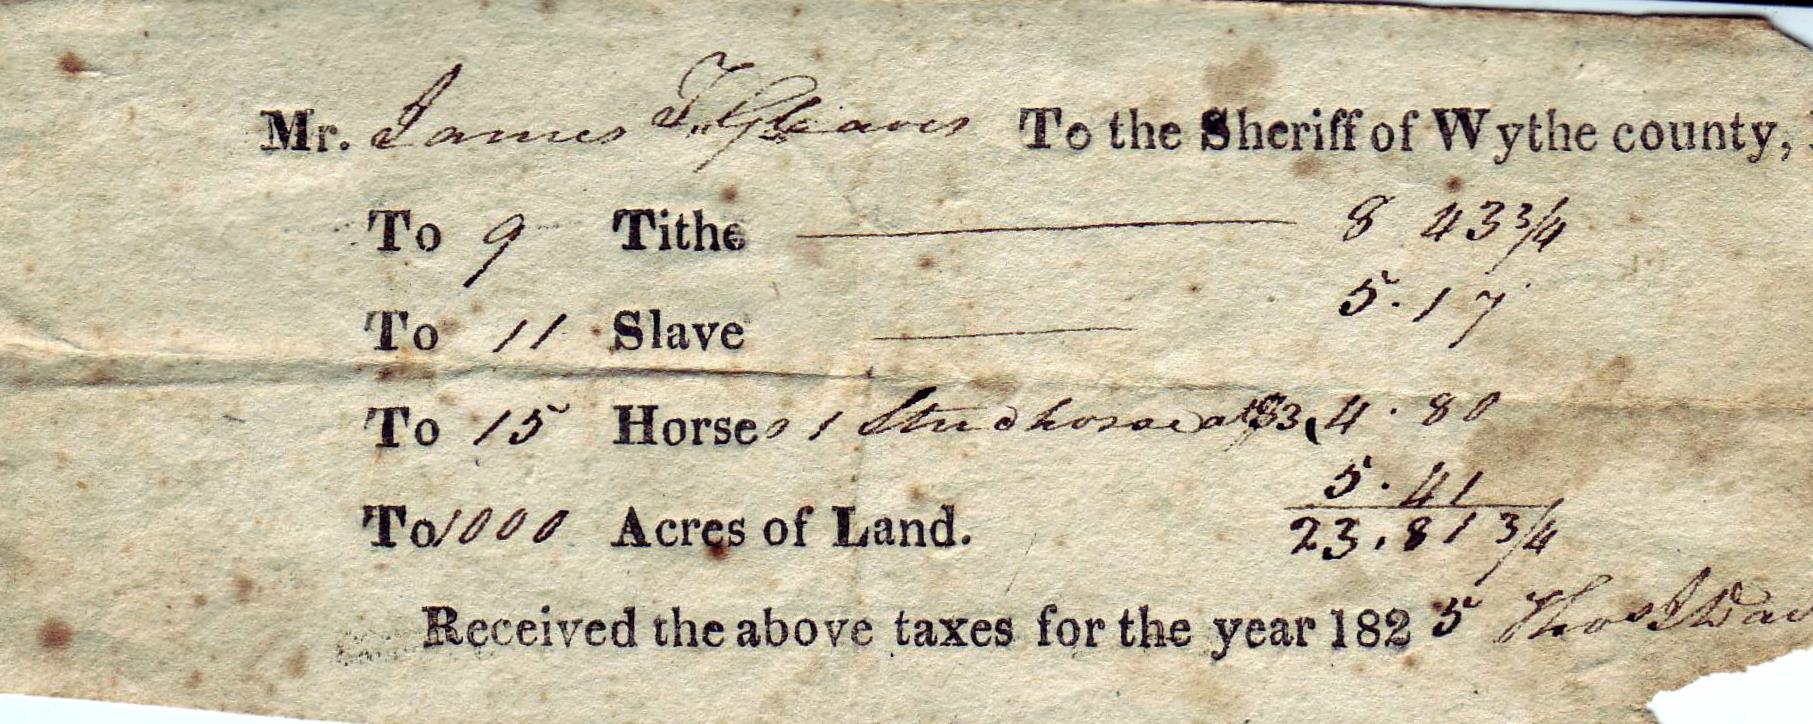 Mr. James T. Gleaves To the Sheriff of Wythe county,
To 9 Tithe 8 43 3/4
To 11 Slave 5.17
To 15 Horses 1 Studhorse at $3, 4.80
5.41
To 1000 Acres of Land. 23.81 3/4
Received the above taxes for the year 1825 Thos J